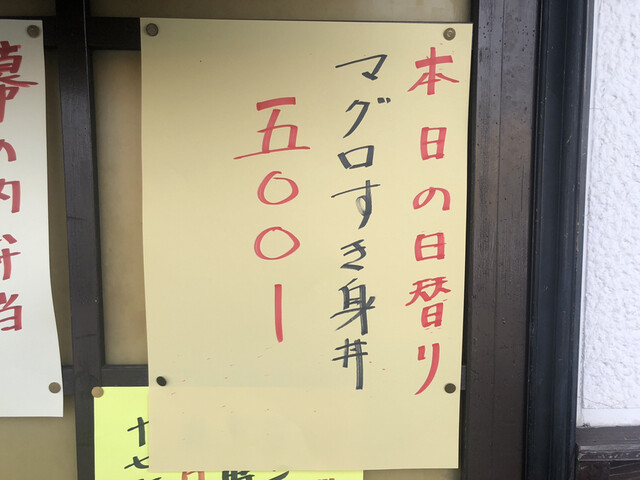 本日の日替り
マグロすき身丼
五〇〇ー
幕の内弁当
十七